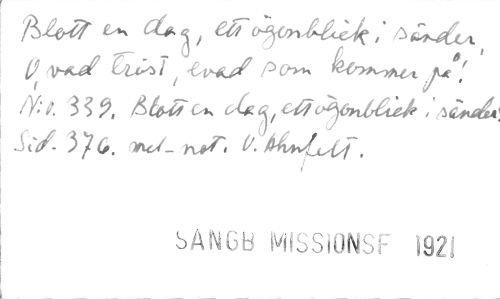 Blott en dag, ett ögonblick i sänder,
O, vad tröst, evad som kommer på!
N:o. 339. Blott en dag, ett ögonblick i sänder!
Sid. 376. mel-not. O. Ahnfelt.
SANGB MISSIONSF 1921